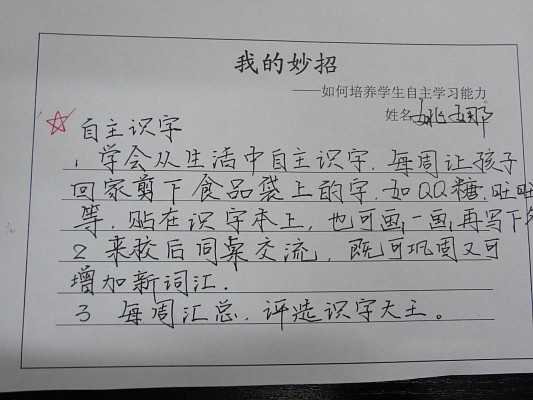 我的妙招
——如何培养学生自主学习能力
姓名 姚娜
自主识字
1, 学会从生活中自主识字, 每周让孩子
回家剪下食品袋上的字, 如QQ糖, 旺旺
等, 贴在识字本上, 也可画一画, 再写下
2 来校后同桌交流, 既可巩固又可
增加新词汇.
3 每周汇总, 评选识字大王。